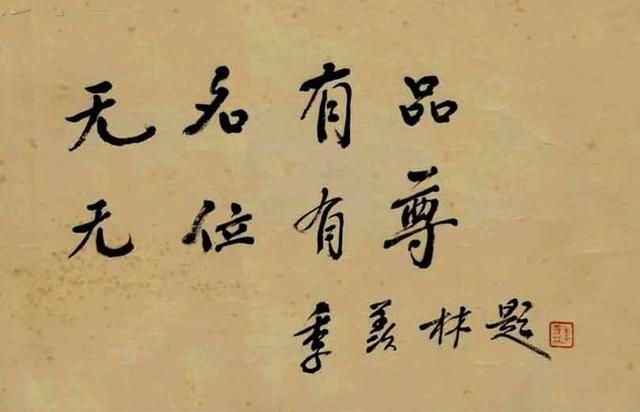 无名有品
无位有尊
季羡林题